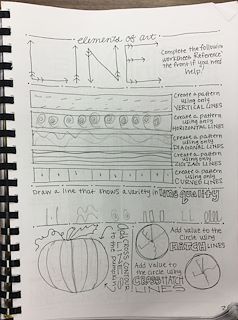 elements of art
Complete the following
worksheet. Reference
the front if you need
help!
Create a pattern
using only
VERTICAL LINES
Create a pattern
using only
HORIZONTAL LINES
Create a pattern
using only
DIAGONAL LINES
Create a pattern
using only
ZIGZAG LINES
Create a pattern
using only
CURVED LINES
Draw a line that shows a variety in line quality
Add value to
the circle using
HATCH LINES
Add value to
the circle using
CROSSHATCH
LINES
Add CROSS CONTOUR
LINES
to the pumpkin